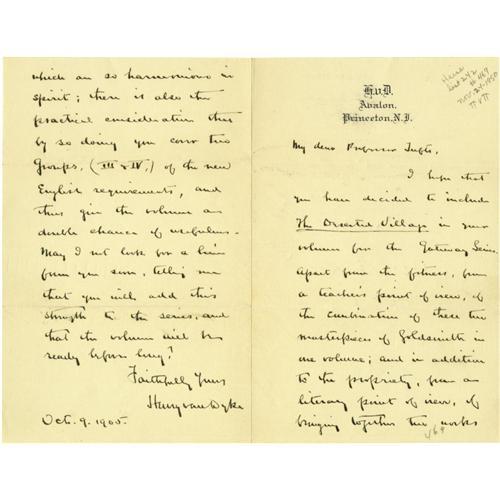 H.v.D.
Avalon,
Princeton, N.J.
My dear Professor Tufts,
I hope that
you have decided to include
The Deserted Village in your
volume for the Gateway Series.
Apart from the fitness, from
a teacher's point of view, of
the combination of these two
masterpieces of Goldsmith in
one volume; and in addition
to the propriety, from a
literary point of view, of
bringing together two works
469
which are so harmonious in
spirit; there is also the
practical consideration that
by so doing you cover two
Groups, (III & IV,) of the new
English requirements, and
thus give the volume a
double chance of usefulness.
May I not look for a line
from you soon, telling me
that you will add this
strength to the series, and
that the volume will be
ready before long?
Faithfully Yours
Henry van Dyke
Oct. 9. 1905.
List 242
# 469
Nov. 24-1950